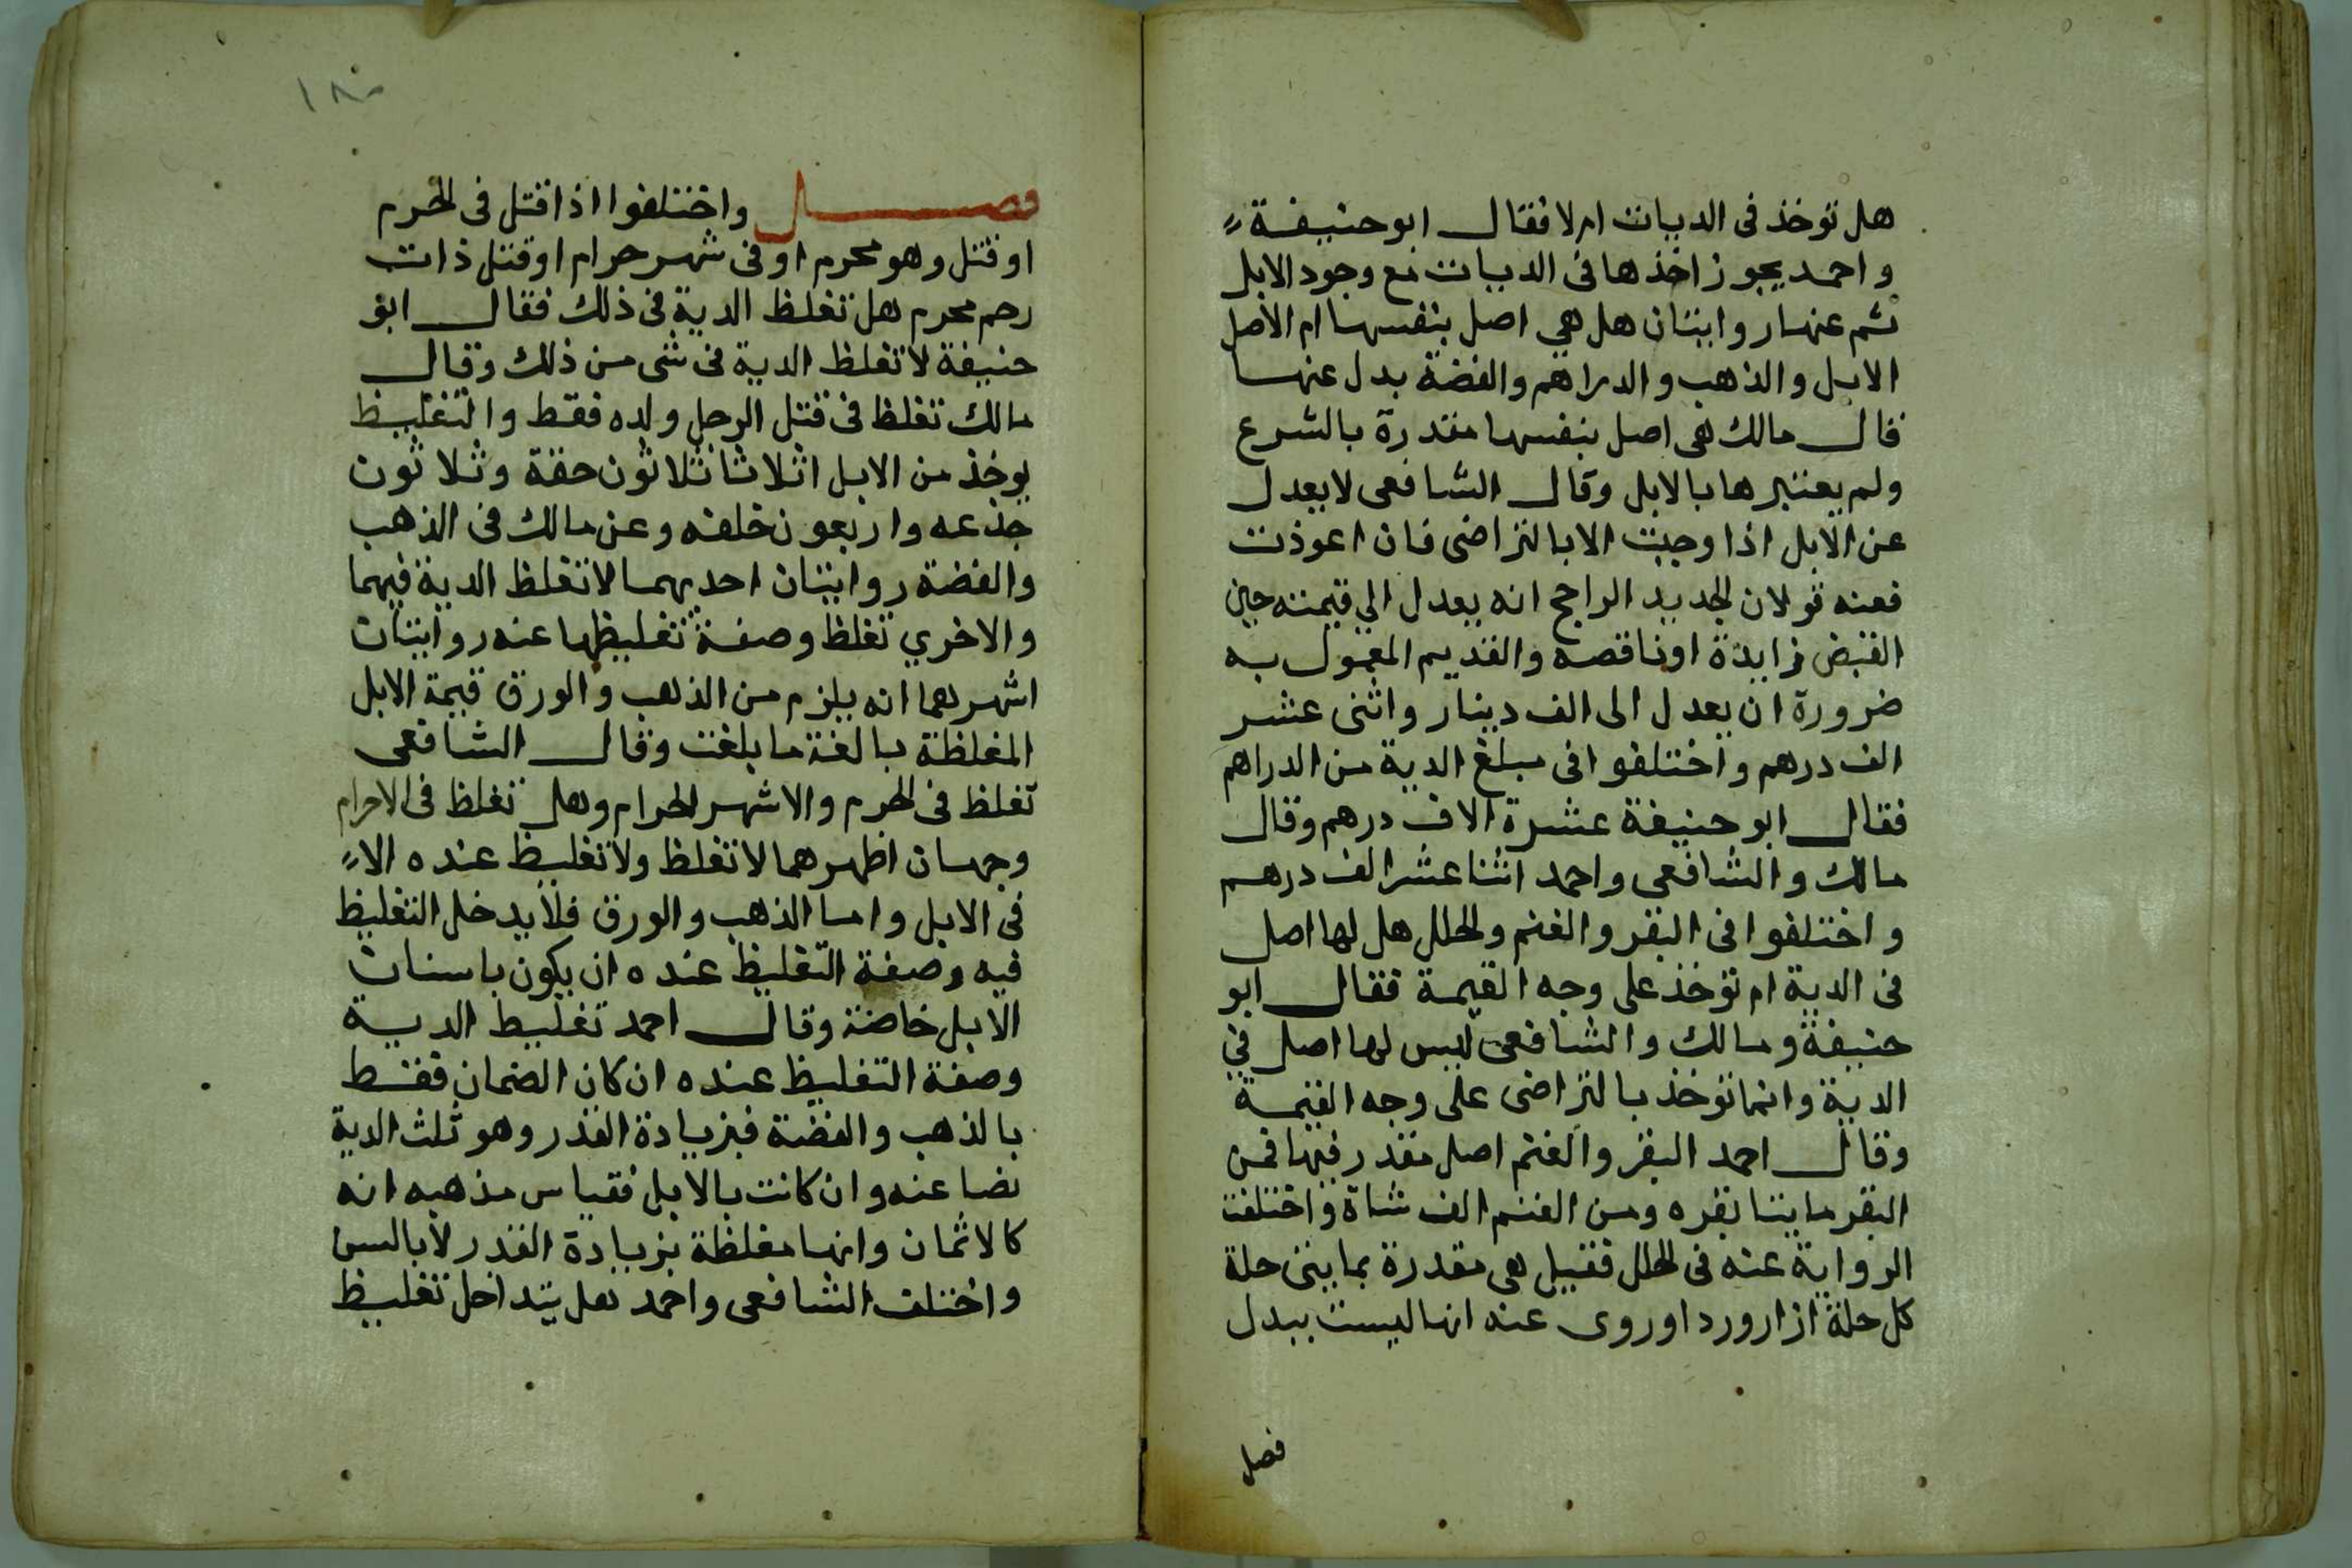 هل توخذ فى الديات ام لا فقال ابو حنيفة
واحمد يجوز اخذها فى الديات مع وجود الابل
ثم عنها روايتان هل هي اصل بنفسها ام الاصل
الابل والذهب والدراهم والفضة بدل عنها
قال مالك هى اصل بنفسها مقدرة بالشرع
ولم يعتبرها بالابل وقال الشافعى لا يعدل
عن الابل اذا وجبت الا بالتراضى فان اعوذت
فعنه قولان الجديد الراجح انه يعدل الي قيمته حين
القبض زايدة او ناقصه والقديم المعمول به
ضرورة ان يعدل الى الف دينار واثنى عشر
الف درهم واختلفوا فى مبلغ الدية من الدراهم
فقال ابو حنيفة عشرة الاف درهم وقال
مالك والشافعى واحمد اثنا عشر الف درهم
واختلفوا فى البقر والغنم والحلل هل لها اصل
فى الدية ام توخذ على وجه القيمة فقال ابو
حنيفة ومالك والشافعى ليس لها اصل في
الدية وانما توخذ بالتراضى على وجه القيمة
وقال احمد البقر والغنم اصل مقدر فيها فمن
البقر مايتا بقره ومن الغنم الف شاة واختلفت
الرواية عنه فى الحلل فقيل هى مقدرة بمايتى حلة
كل حلة ازار وردا وروى عنه انها ليست ببدل
فصل
١٨٠
فصل واختلفوا اذا قتل فى الحرم
او قتل وهو محرم او فى شهر حرام او قتل ذات
رحم محرم هل تغلظ الدية فى ذلك فقال ابو
حنيفة لا تغلظ الدية فى شى من ذلك وقال
مالك تغلظ فى قتل الرجل ولده فقط والتغليظ
يوخذ من الابل اثلاثا ثلاثون حقة وثلاثون
جذعه واربعون خلفه وعن مالك فى الذهب
والفضة روايتان احديهما لا تغلظ الدية فيهما
والاخري تغلظ وصفة تغليظها عنه روايتان
اشهرهما انه يلزم من الذهب والورق قيمة الابل
المغلظة بالغة ما بلغت وقال الشافعى
تغلظ فى الحرم والاشهر الحرام وهل تغلظ فى الاحرام
وجهان اظهرهما لا تغلظ ولا تغليظ عنده الا
فى الابل واما الذهب والورق فلا يدخل التغليظ
فيه وصفة التغليظ عنده ان يكون باسنان
الابل خاصة وقال احمد تغليظ الدية
وصفة التغليظ عنده ان كان الضمان فقط
بالذهب والفضة فبزيادة القدر وهو ثلث الدية
نضا عنه وان كانت بالابل فقياس مذهبه انه
كالاثمان وانها مغلظة بزيادة القدر لا بالسن
واختلف الشافعى واحمد هل يتداخل تغليظ